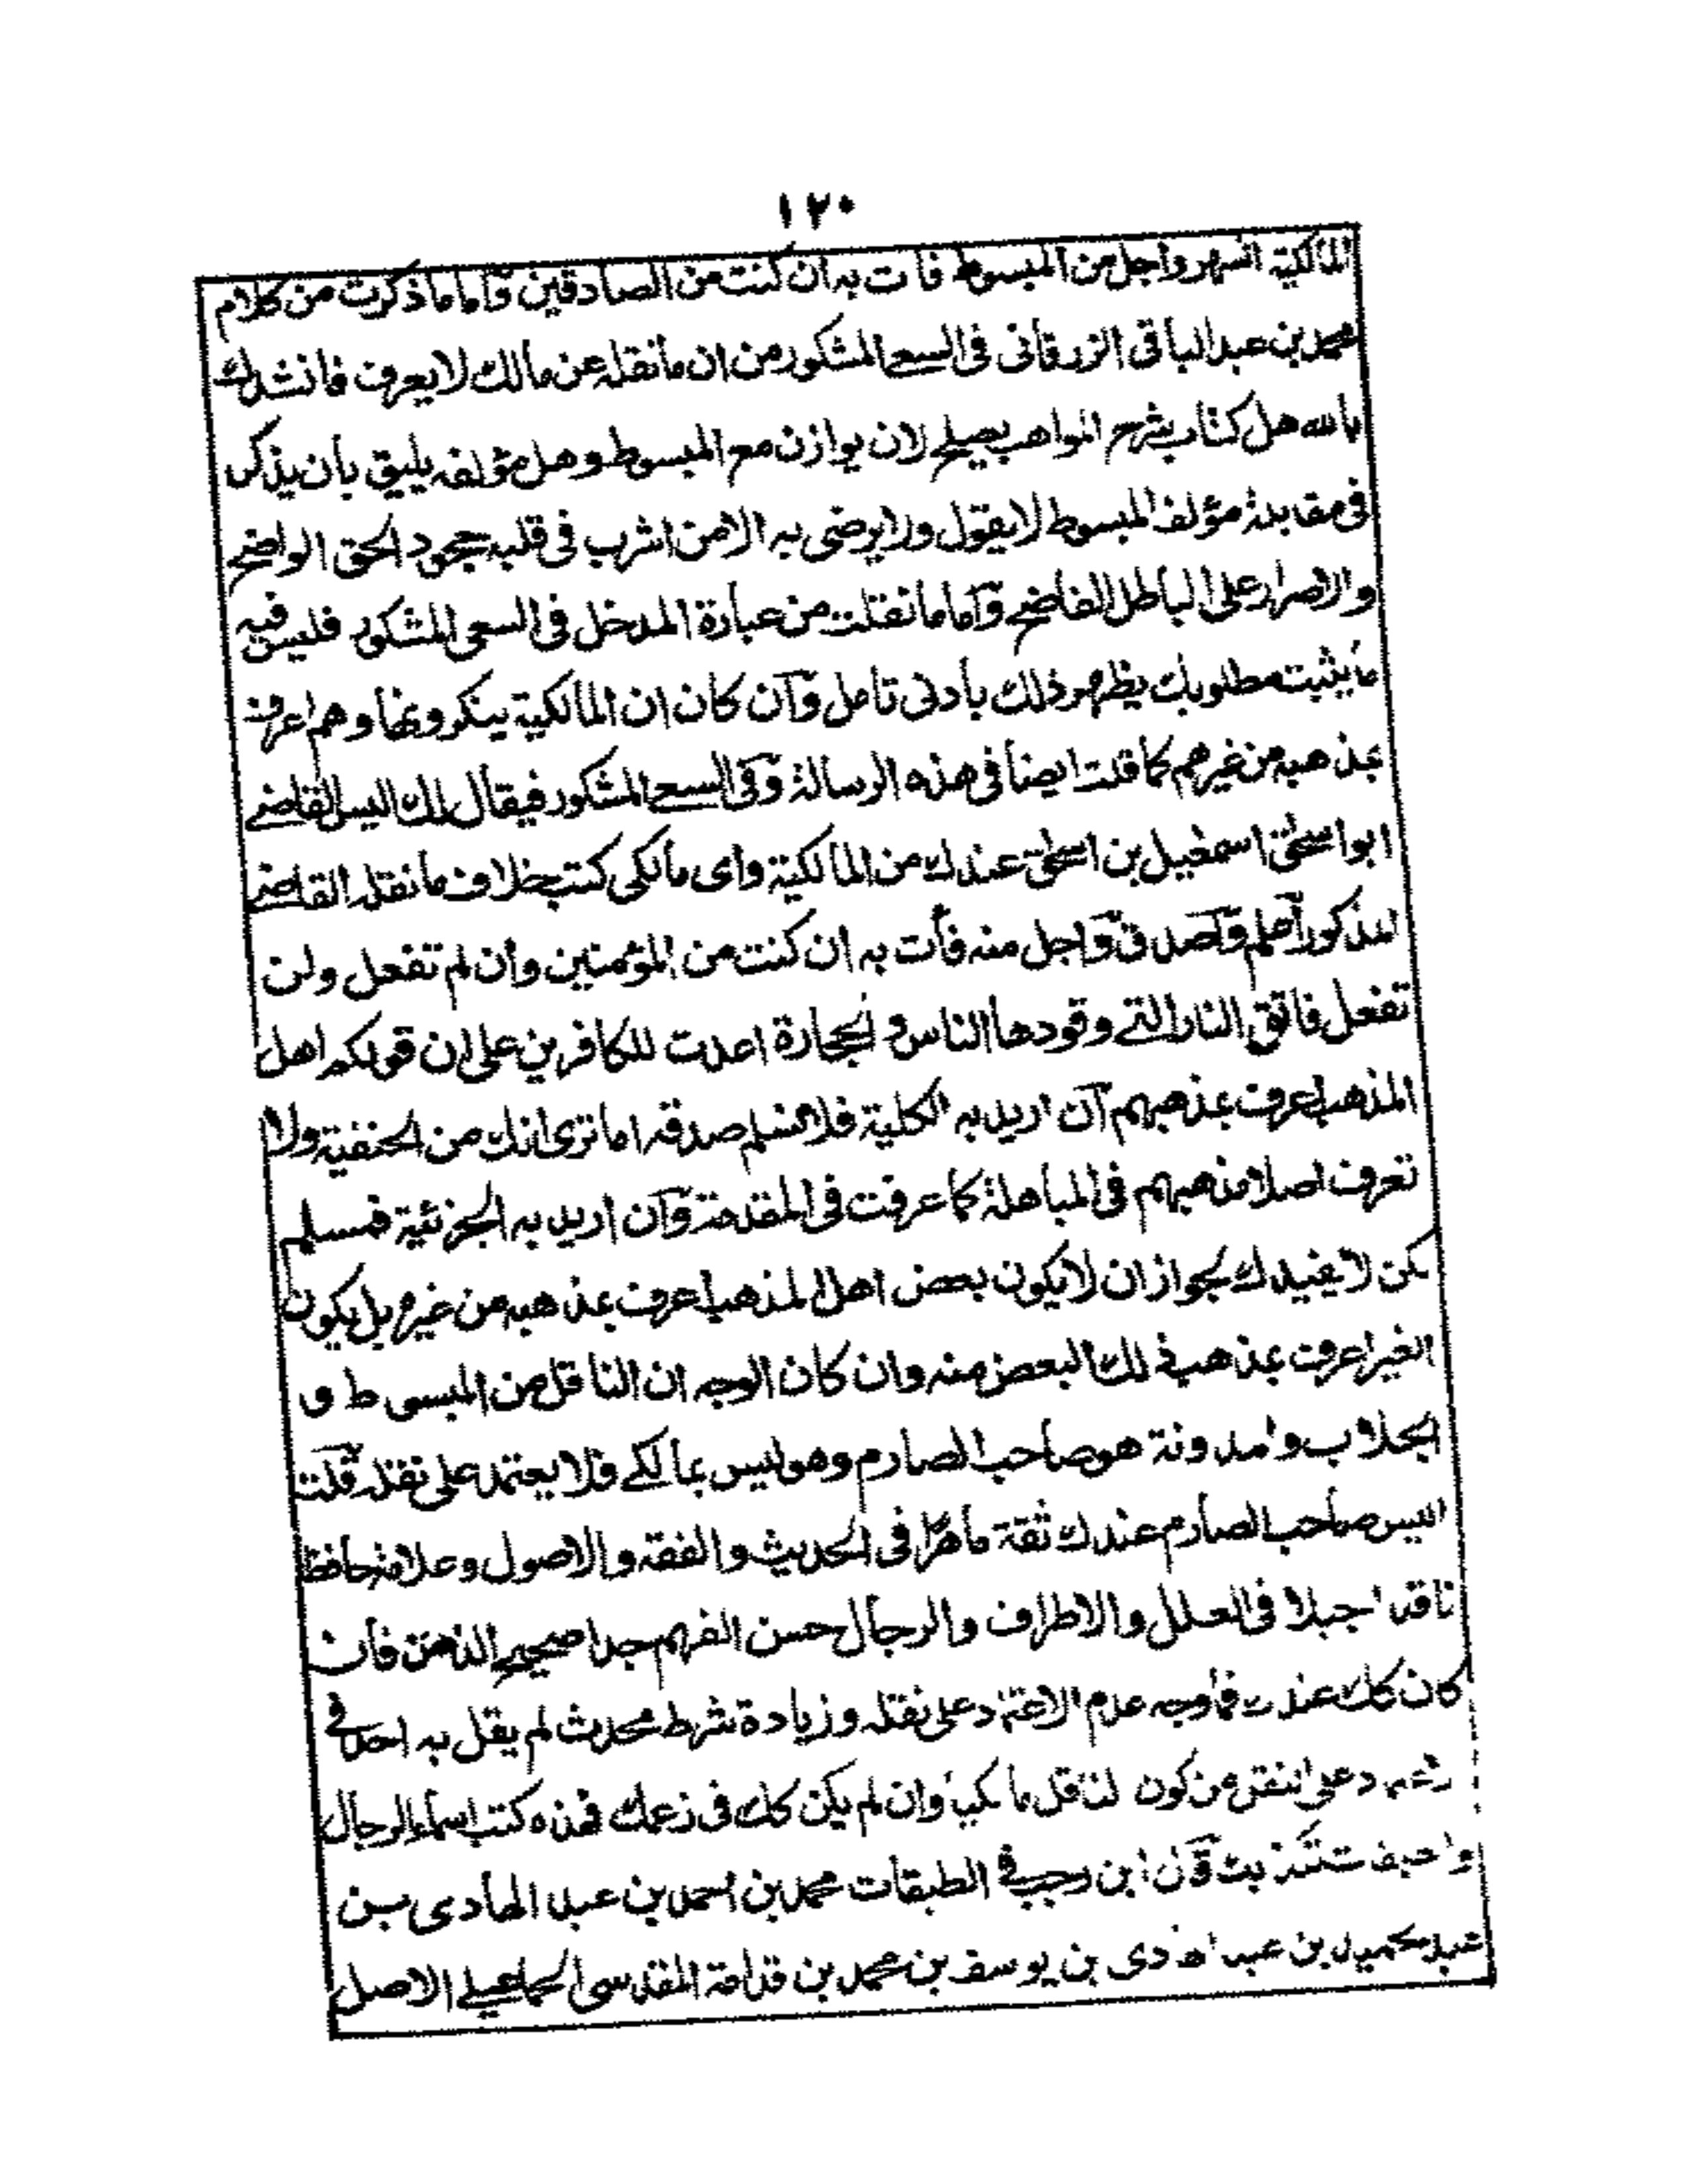 ١٢٠
المالكية اشهر واجل من المبسوط فات به ان كنت من الصادقين وأما ما ذكرت من كلام
محمد بن عبد الباقى الزرقانى فى السعى المشكور من ان ما نقله عن مالك لا يعرف فانشدك
بالله هل كتاب شرح المواهب يصلح لان يوازن مع المبسوط وهل مؤلفه يليق بان يذكر
فى مقابلة مؤلف المبسوط لا يقول ولا يرضى به الا من اشرب فى قلبه جحود الحق الواضح
والاصرار على الباطل الفاضح وآما ما نقلت من عبارة المدخل فى السعى المشكور فليس فيه
ما يثبت مطلوبك يظهر ذلك بادنى تامل وآن كان ان المالكية ينكرونها وهم اعرف
بمذهبه من غيرهم كما قلت ايضا فى هذه الرسالة وفى السعى المشكور فيقال لك اليس القاضى
ابو اسحق اسمعيل بن اسحق عندك من المالكية واى مالكى كتب خلاف ما نقله القاضى
المذكور آعلم وآصدق وآجل منه فأت به ان كنت من المؤمنين وان لم تفعل ولن
تفعل فاتق النار التى وقودها الناس والحجارة اعدت للكافرين على ان قولكم اهل
المذهب اعرف بمذهبهم آن اريد به الكلية فلا نسلم صدقه اما ترى انك من الحنفية ولا
تعرف اصلا مذهبهم فى المباهلة كما عرفت فى المقدمة وآن اريد به الجزئية فمسلم
لكن لا يفيدك لجواز ان لا يكون بعض اهل المذهب اعرف بمذهبه من غيره بل يكون
الغير اعرف بمذهب ذلك البعض منه وان كان الوجه ان الناقل من المبسوط و
الجلاب والمدونة هو صاحب الصارم وهو ليس بمالكى فلا يعتمد على نقله قلت
اليس صاحب الصارم عندك ثقة ماهرا فى الحديث والفقه والاصول وعلامة حافظا
ناقدا جبلا فى العلل والاطراف والرجال حسن الفهم جدا صحيح الذهن فان
كان كك عندك فما وجه عدم الاعتماد على نقله وزيادة شرط محدث لم يقل به احد فى
على النقل من كون الناقل مالكيا وان لم يكن كك فى زعمك فهذه كتب اسماء الرجال
قال ابن رجب فى الطبقات محمد بن احمد بن عبد الهادى بن
عبد الحميد بن عبد الهادى بن يوسف بن محمد بن قدامة المقدسى الجماعيلى الاصل